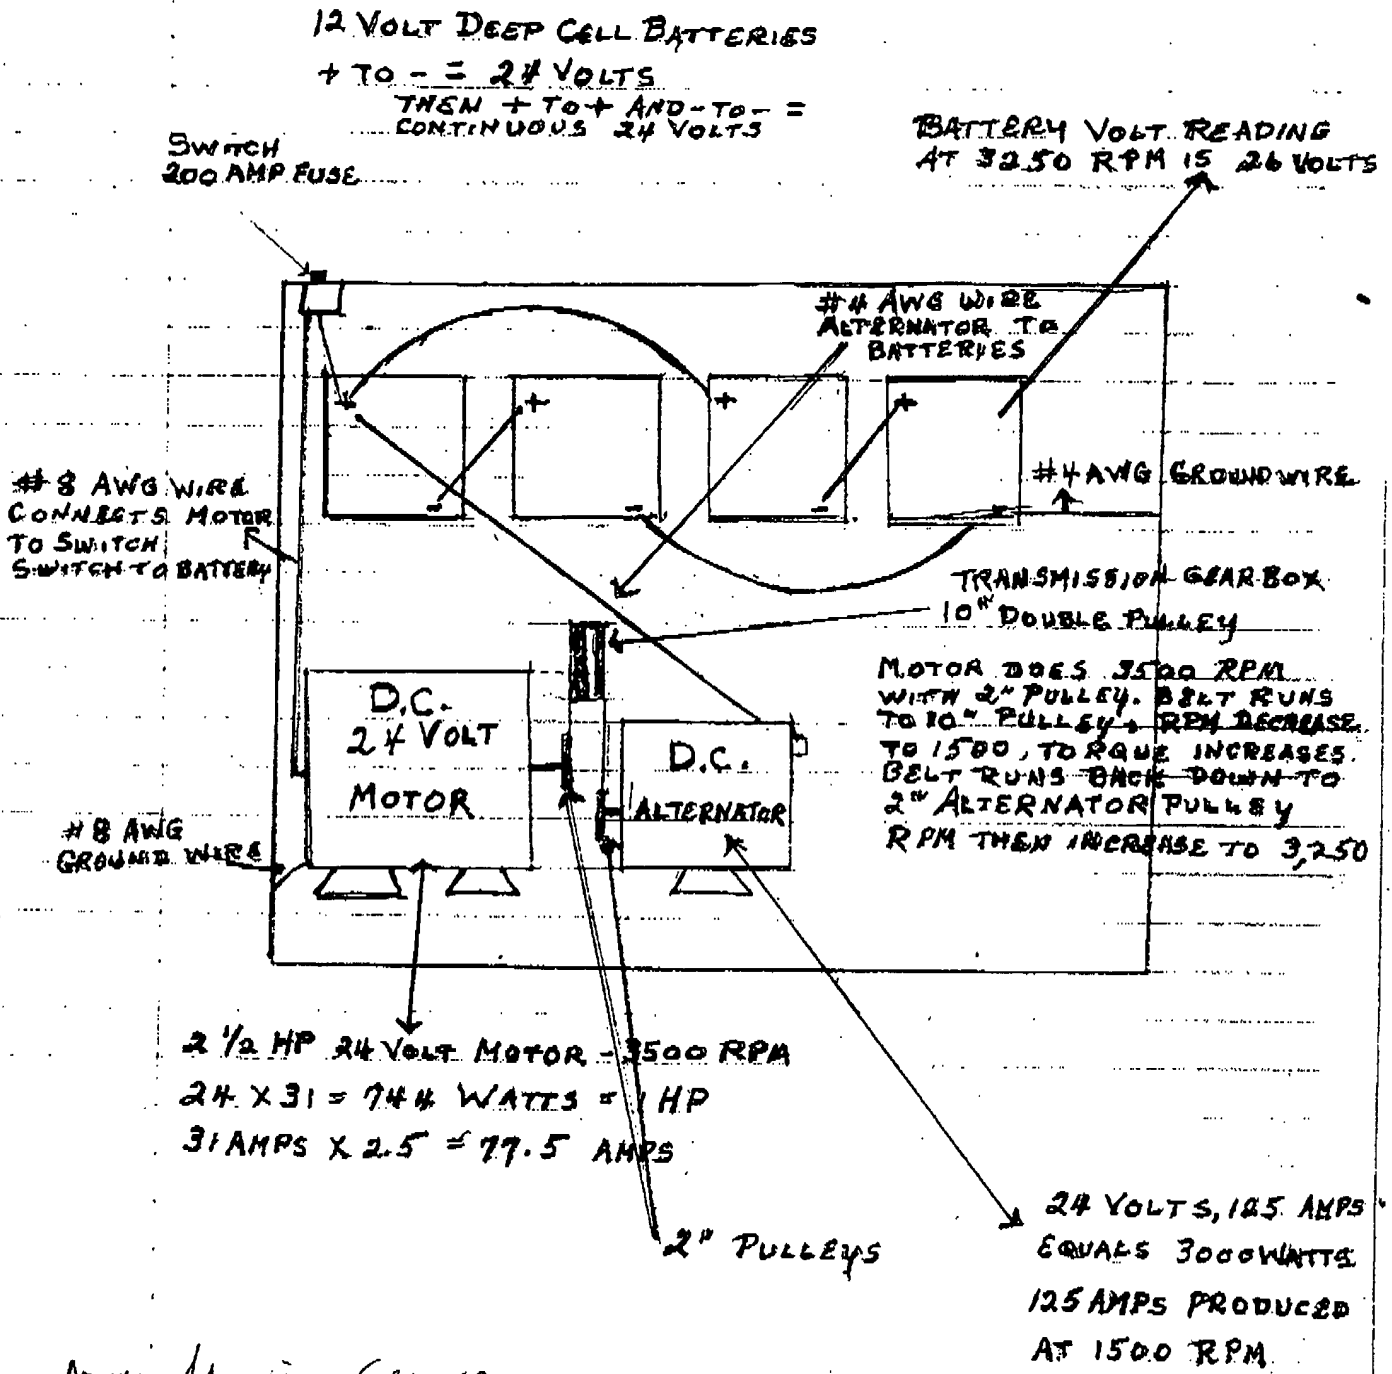 12 VOLT DEEP CELL BATTERIES
+ TO - = 24 VOLTS
THEN + TO + AND - TO - =
CONTINUOUS 24 VOLTS
SWITCH
200 AMP FUSE
BATTERY VOLT READING
AT 3250 RPM IS 26 VOLTS
#4 AWG WIRE
ALTERNATOR TO
BATTERIES
+
+
+
+
-
-
-
-
#4 AWG GROUND WIRE
#8 AWG WIRE
CONNECTS MOTOR
TO SWITCH
SWITCH TO BATTERY
TRANSMISSION GEAR BOX
10" DOUBLE PULLEY
MOTOR DOES 3500 RPM
WITH 2" PULLEY. BELT RUNS
TO 10" PULLEY, RPM DECREASE
TO 1500, TORQUE INCREASES.
BELT RUNS BACK DOWN TO
2" ALTERNATOR PULLEY
RPM THEN INCREASE TO 3,250
D.C.
24 VOLT
MOTOR
D.C.
ALTERNATOR
#8 AWG
GROUND WIRE
2 1/2 HP 24 VOLT MOTOR - 3500 RPM
24 X 31 = 744 WATTS = 1 HP
31 AMPS X 2.5 = 77.5 AMPS
2" PULLEYS
24 VOLTS, 125 AMPS
EQUALS 3000 WATTS
125 AMPS PRODUCED
AT 1500 RPM